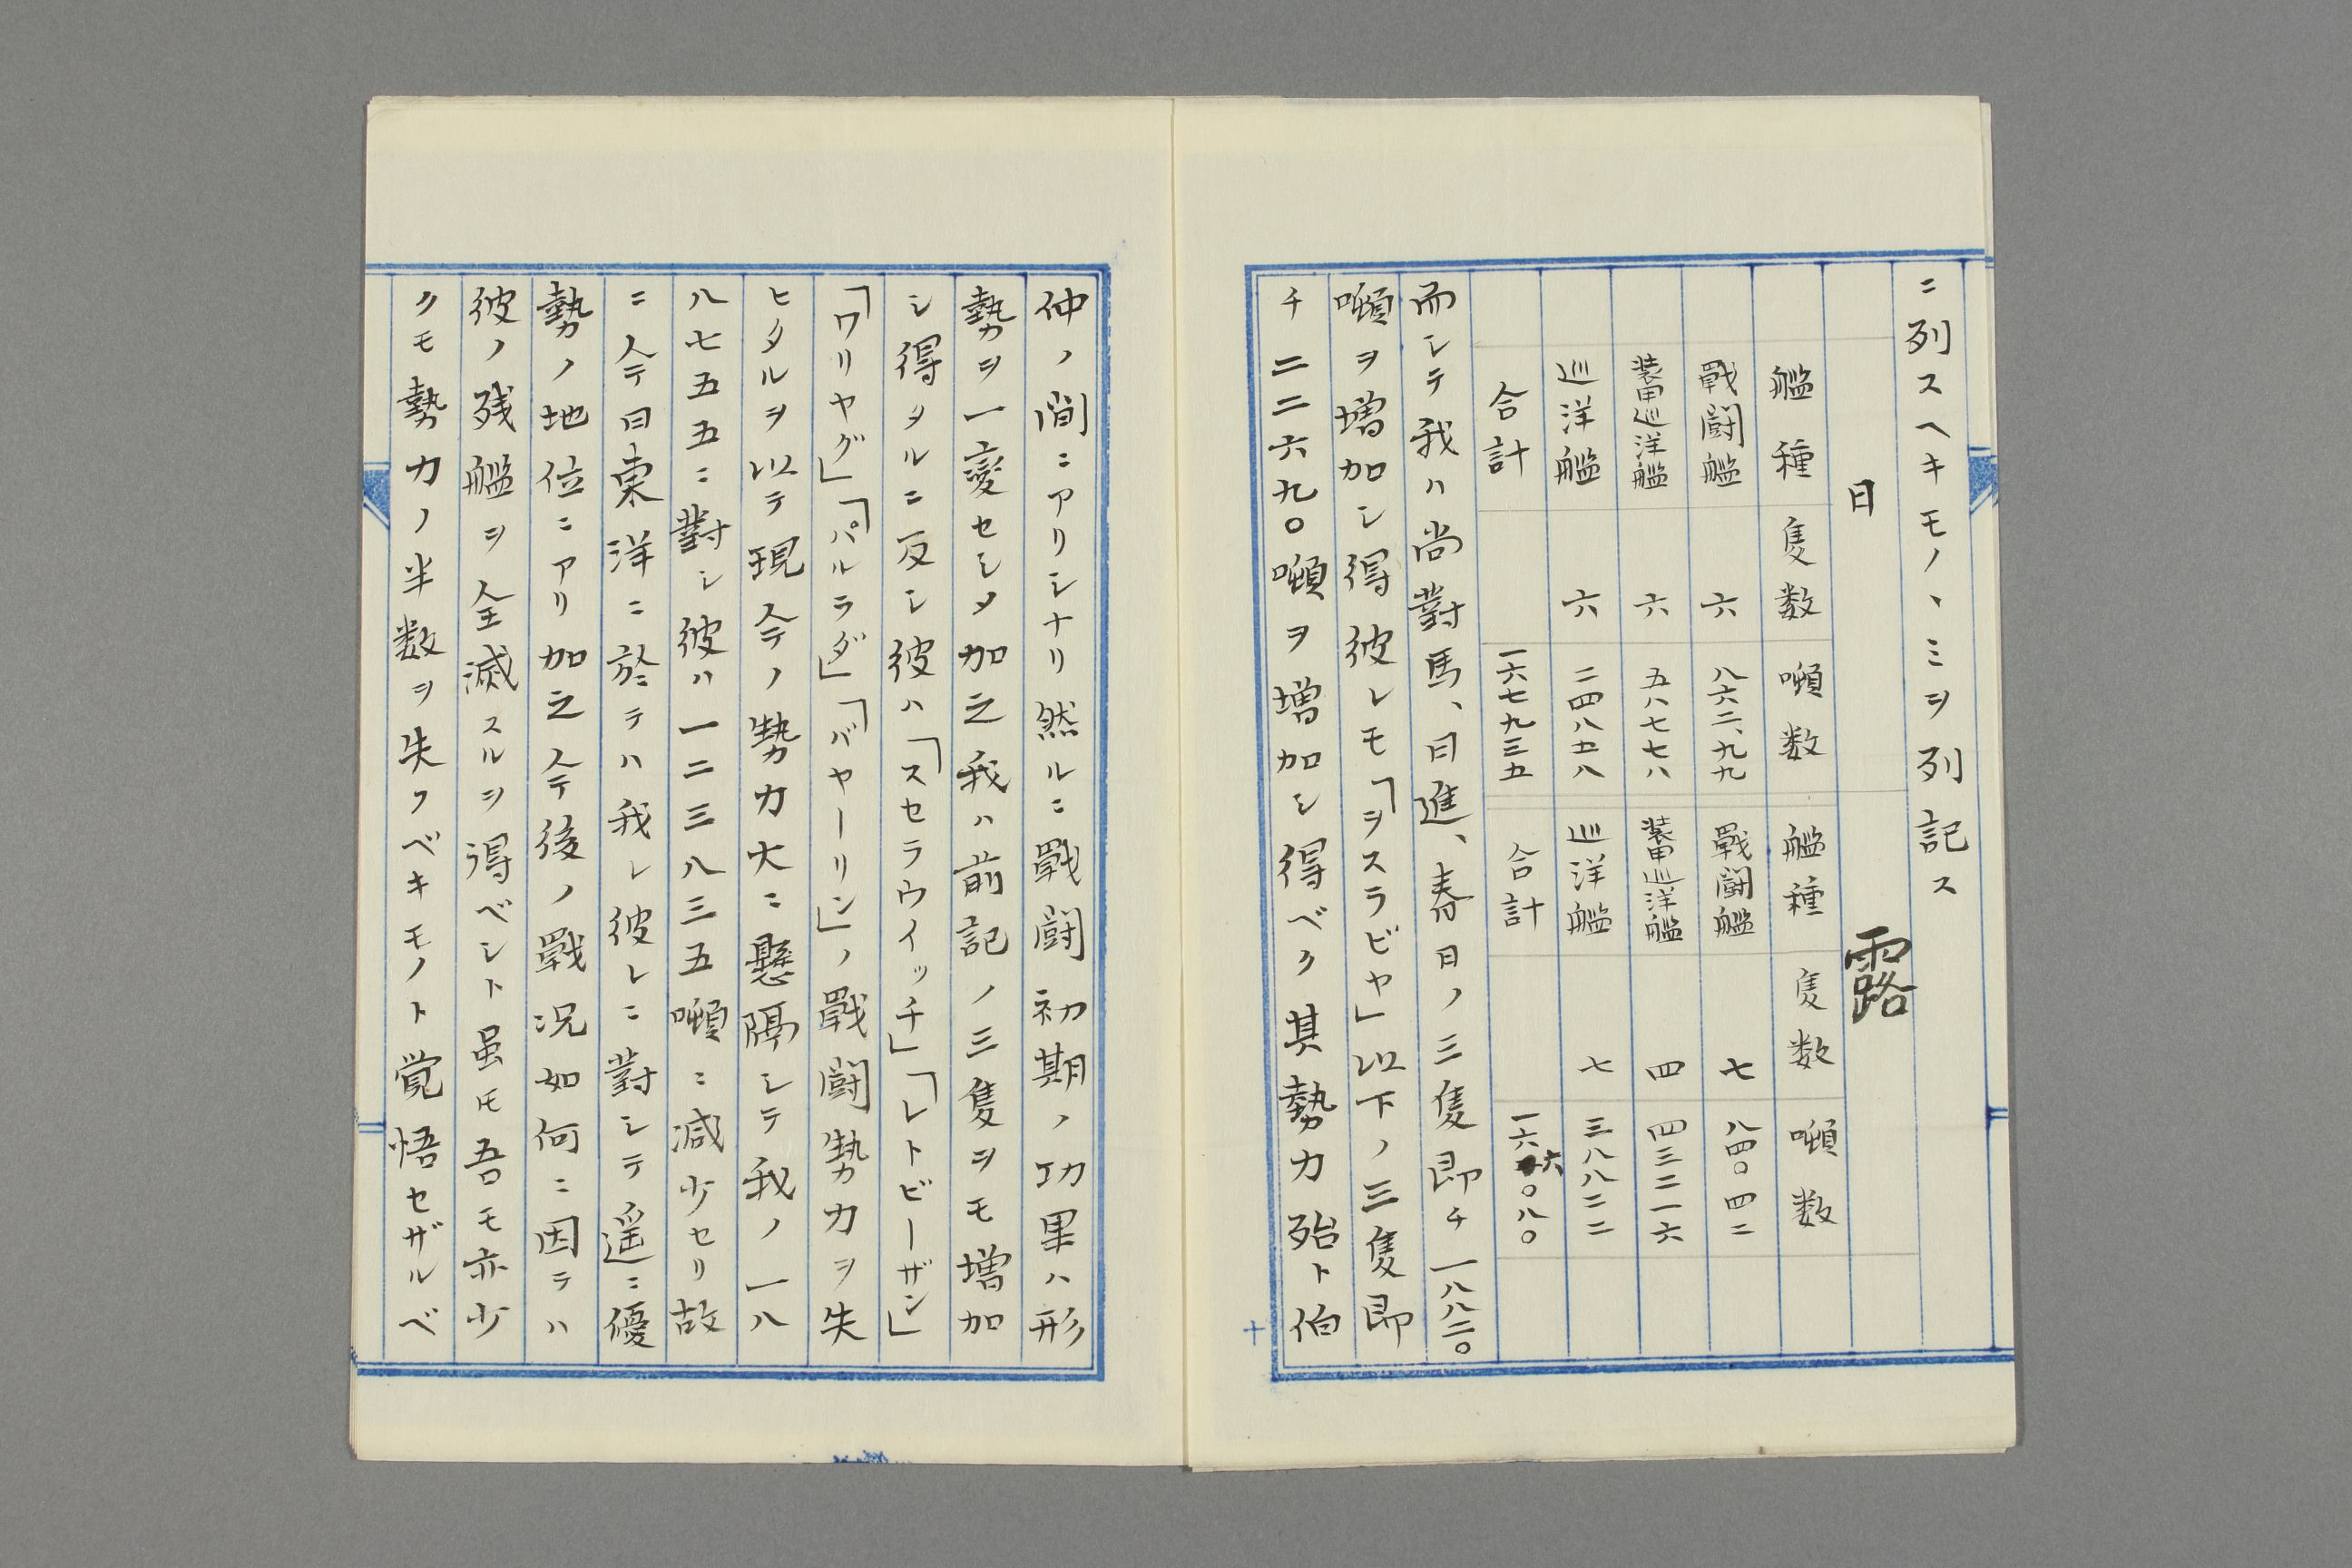 ニ列スヘキモノヽミヲ列記ス
日 露
艦種 隻数 噸数 艦種 隻数 噸数
戰闘艦 六 八六二、九九 戰闘艦 七 八四〇四二
装甲巡洋艦 六 五八七七八 装甲巡洋艦 四 四三二一六
巡洋艦 六 二四八五八 巡洋艦 七 三八八二二
合計 一六七九三五 合計 一六六〇八〇
而シテ我ハ尚對馬、日進、春日ノ三隻即チ一八八二〇
噸ヲ増加シ得彼レモ「ヲスラビヤ」以下ノ三隻即
チ二二六九〇噸ヲ増加シ得ベク其勢力殆ト伯
仲ノ間ニアリシナリ然ルニ戰闘初期ノ功果ハ形
勢ヲ一變セシメ加之我ハ前記ノ三隻ヲモ増加
シ得タルニ反シ彼ハ「スセラウイッチ」「レトビーザン」
「ワリヤグ」「パルラダ」「バヤーリン」ノ戰闘勢力ヲ失
ヒタルヲ以テ現今ノ勢力大ニ懸隔シテ我ノ一八
八七五五ニ對シ彼ハ一二三八三五噸ニ減少セリ故
ニ今日東洋ニ於テハ我レ彼レニ對シテ遥ニ優
勢ノ地位ニアリ加之今後ノ戰况如何ニ因テハ
彼ノ残艦ヲ全滅スルヲ得ベシト虽モ吾モ亦少
クモ勢力ノ半数ヲ失フベキモノト覚悟セザルベ